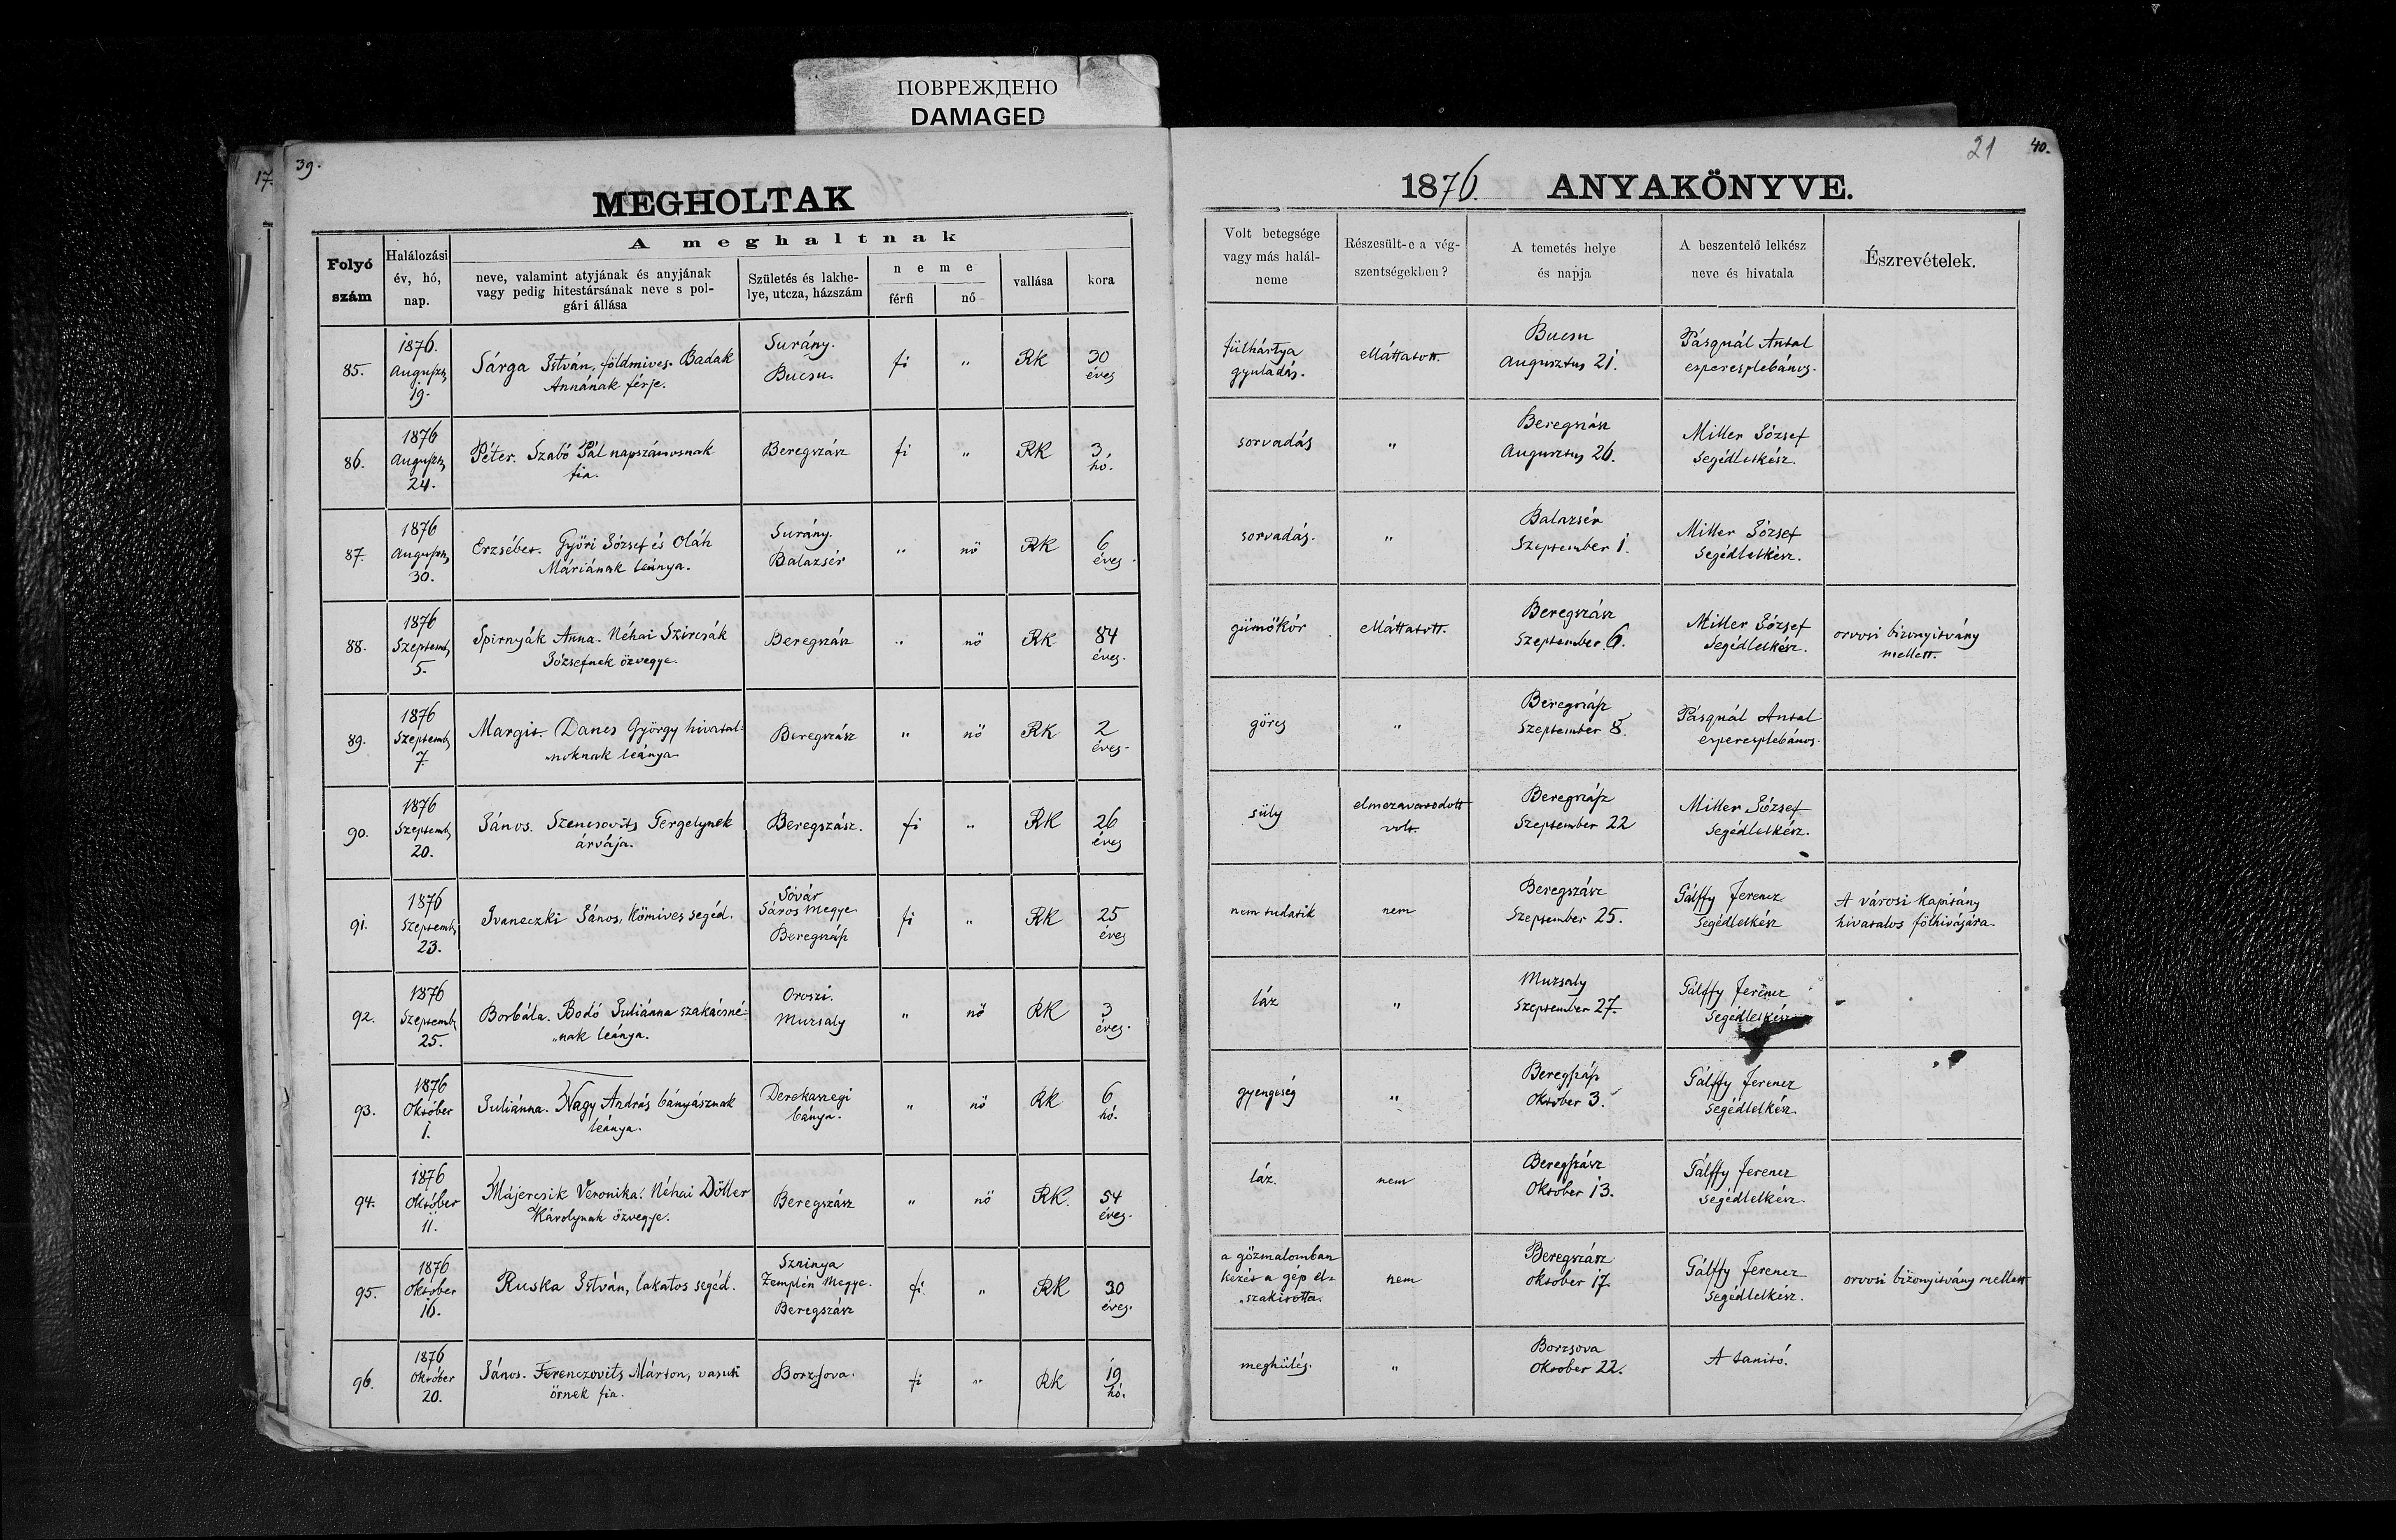 ПОВРЕЖДЕНО
DAMAGED
17.
39.
MEGHOLTAK
Folyó szám
Halálozási év, hó, nap.
A meghaltnak
neve, valamint atyjának és anyjának vagy pedig hitestársának neve s polgári állása
Születés és lakhelye, utcza, házszám
neme
férfi
nő
vallása
kora
85. 1876. Auguszt, 19. Sárga István, földmives. Badak Annának férje. Surány. Bucsu. fi " RK 30 éves
86. 1876 Auguszt, 24. Péter. Szabó Pál napszámosnak fia. Beregszász fi " RK 3 hó.
87. 1876 Auguszt, 30. Erzsébet. Győri József és Oláh Máriának leánya. Surány. Balazsér " nő RK 6 éves.
88. 1876 Szeptemb, 5. Spirnyák Anna. Néhai Szircsák Józsefnek özvegye. Beregszász " nő RK 84 éves.
89. 1876 Szeptemb, 7. Margit. Dancs György hivatal-noknak leánya Beregszász " nő RK 2 éves.
90. 1876 Szeptemb, 20. János. Szencsovits Gergelynek árvája. Beregszász. fi " RK 26 éves
91. 1876 Szeptemb, 23. Ivaneczki János, kőmives segéd. Sóvár Sáros megye. Beregszász fi " RK 25 éves
92. 1876 Szeptemb, 25. Borbála. Bodó Juliánna szakácsné-nak leánya. Oroszi. Muzsaly " nő RK 3 éves.
93. 1876 Október 1. Juliánna. Nagy András bányásznak leánya. Derekaszegi bánya. " nő RK 6 hó.
94. 1876 Október 11. Májercsik Veronika. Néhai Döller Károlynak özvegye. Beregszász " nő RK. 54 éves.
95. 1876 Oktober 16. Ruska István, lakatos segéd. Szninya Zemplén Megye. Beregszász fi " RK 30 éves.
96. 1876 Október 20. János. Ferenczovits Márton, vasuti őrnek fia. Borzsova. fi " RK 19 hó.
21
40.
1876. ANYAKÖNYVE.
Volt betegsége vagy más halálneme
Részesült-e a végszentségekben?
A temetés helye és napja
A beszentelő lelkész neve és hivatala
Észrevételek.
fülhártya gyuladás. elláttatott. Bucsu Augusztus 21. Pásquál Antal esperesplebános.
sorvadás " Beregszász Augusztus 26. Miller József segédlelkész.
sorvadás. " Balazsér Szeptember 1. Miller József segédlelkész.
gümőkór elláttatott. Beregszász Szeptember 6. Miller József segédlelkész. orvosi bizonyitvány mellett.
görcs " Beregszász Szeptember 8. Pásquál Antal esperesplebános.
süly elmezavarodott volt. Beregszász Szeptember 22 Miller József segédlelkész.
nem tudatik nem Beregszász Szeptember 25. Gálffy Ferencz segédlelkész A városi kapitány hivatalos fölhivására.
láz " Muzsaly Szeptember 27. Gálffy Ferencz segédlelkész
gyengeség " Beregszász Október 3. Gálffy Ferencz segédlelkész.
láz. nem Beregszász Oktober 13. Gálffy Ferencz segédlelkész
a gőzmalomban kezét a gép el-szakitotta. nem Beregszász oktober 17. Gálffy Ferencz segédlelkész. orvosi bizonyitvány mellett
meghülés. " Borzsova Oktober 22. A tanitó.